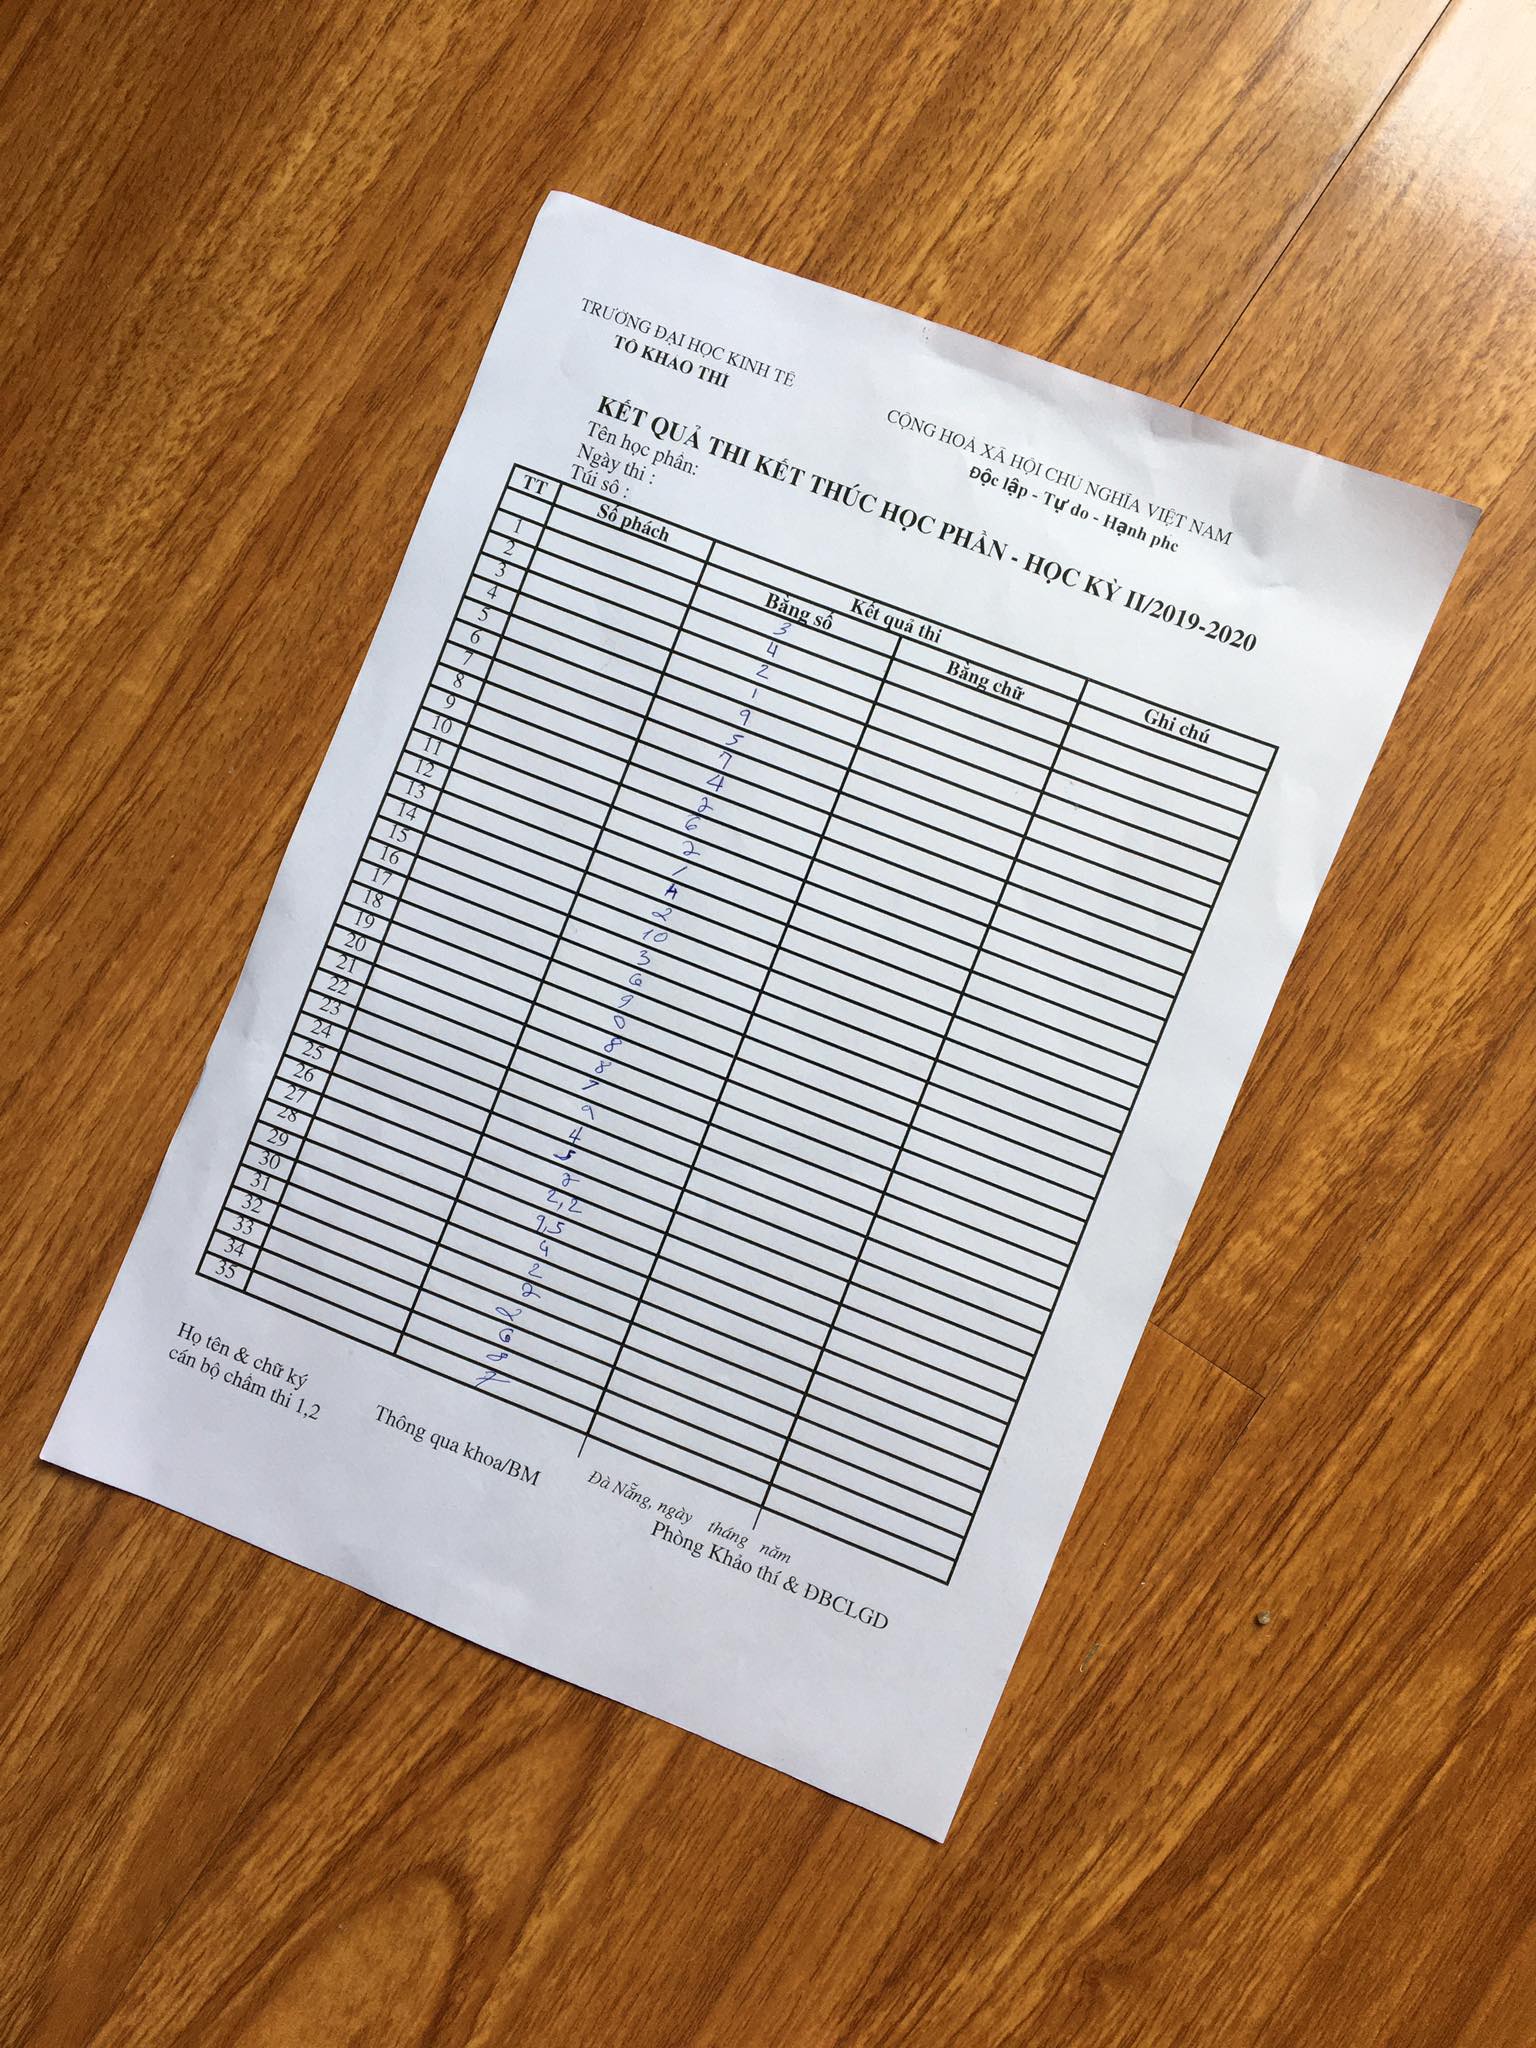 TRƯỜNG ĐẠI HỌC KINH TẾ
TỔ KHẢO THÍ
CỘNG HOÀ XÃ HỘI CHỦ NGHĨA VIỆT NAM
Độc lập - Tự do - Hạnh phc
KẾT QUẢ THI KẾT THÚC HỌC PHẦN - HỌC KỲ II/2019-2020
Tên học phần:
Ngày thi :
Túi số :
TT Số phách Kết quả thi Ghi chú
Bằng số Bằng chữ
1 3
2 4
3 2
4 1
5 9
6 5
7 7
8 4
9 2
10 6
11 2
12 1
13 4
14 2
15 10
16 3
17 6
18 9
19 0
20 8
21 8
22 7
23 9
24 4
25 5
26 2
27 2,2
28 9,5
29 4
30 2
31 2
32 2
33 6
34 8
35 7
Họ tên & chữ ký
cán bộ chấm thi 1,2
Thông qua khoa/BM
Đà Nẵng, ngày tháng năm
Phòng Khảo thí & ĐBCLGD